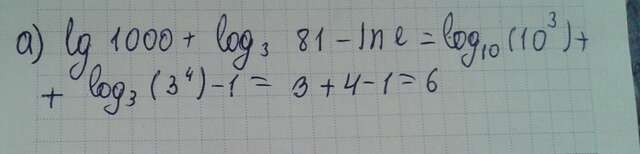 a) lg 1000 + log₃ 81 - ln e = log₁₀(10³) +
+ log₃ (3⁴) - 1 = 3 + 4 - 1 = 6